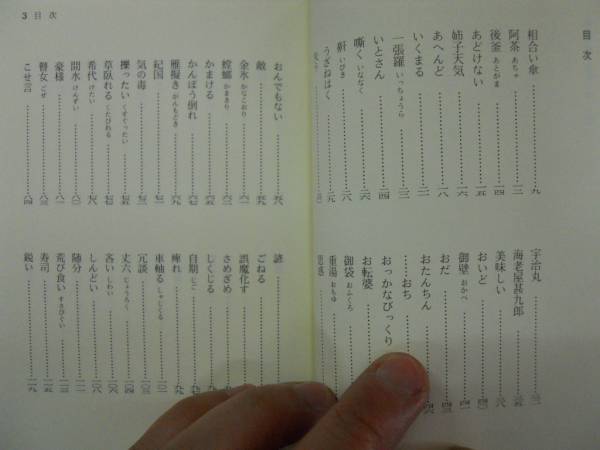 目次
相合い傘………九
阿茶 あちゃ………一二
後釜 あとがま………一三
あどけない………一五
姉子天気………一六
あへんど………一七
いくまる………一八
一張羅 いっちょうら………二一
いとさん………二四
嘶く いななく………二六
鼾 いびき………二八
うざねはく………二九
宇治丸………三一
海老屋甚九郎………三五
美味しい………三八
おいど………四〇
御壁 おかべ………四三
おだ………四五
おたんちん………四六
おち
おっかなびっくり
お転婆
御袋 おふくろ
重湯 おもゆ
3 目次
おんでもない………五八
敵………五九
金氷 かなこおり………六一
蟷螂 かまきり………六三
かまける………六五
かんぼう倒れ………六七
雁擬き がんもどき………六九
紀国………七一
気の毒………七三
擽ったい くすぐったい………七五
草臥れる くたびれる………七六
希代 けたい………七八
間水 けんずい………八〇
豪様………八一
瞽女 ごぜ………八三
こせ言………八四
諺
ごねる
誤魔化す
さめざめ
しくじる
自期 じご
痺れ
車軸る しゃじくる
冗談………一〇三
丈六 じょうろく………一〇四
吝い しわい………一〇六
しんどい………一〇八
随分………一一一
荒び食い すさびぐい………一一三
寿司………一一五
鋭い………一一九